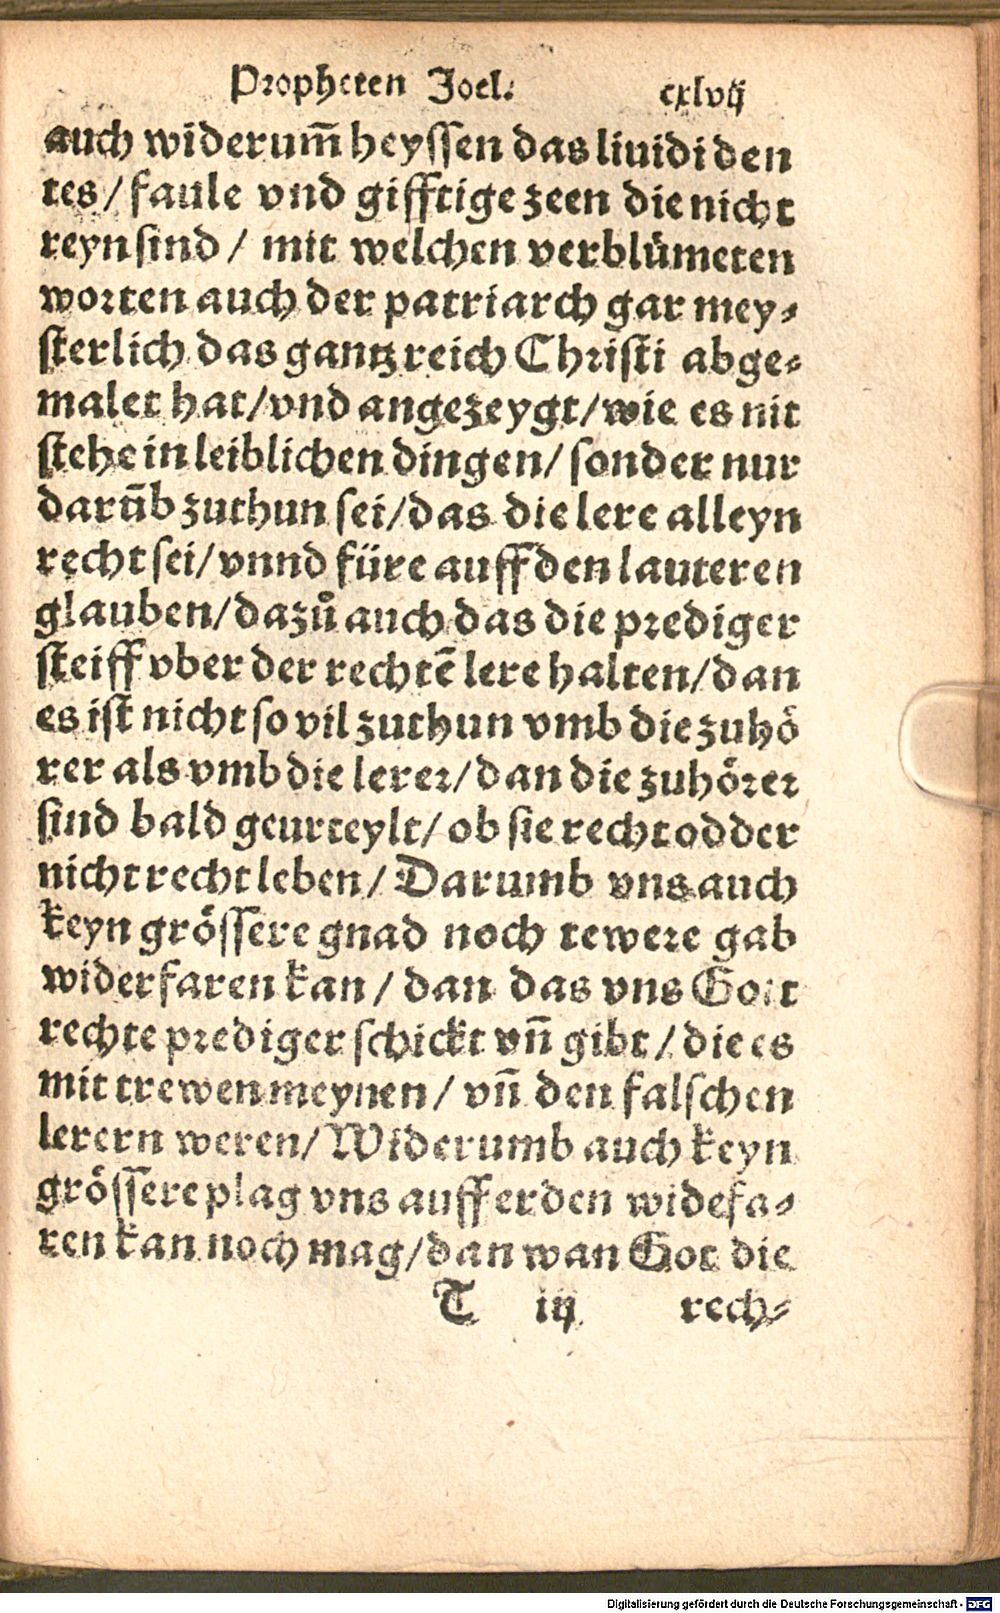 Propheten Joel. cxlvij
auch widerum̃ heyssen das liuidi den
tes / faule vnd gifftige zeen die nicht
reyn sind / mit welchen verblümeten
worten auch der patriarch gar mey⸗
sterlich das gantz reich Christi abge⸗
malet hat / vnd angezeygt / wie es nit
stehe in leiblichen dingen / sonder nur
darũb zuthun sei / das die lere alleyn
recht sei / vnnd füre auff den lauteren
glauben / dazů auch das die prediger
steiff vber der rechtẽ lere halten / dan
es ist nicht so vil zuthun vmb die zuhö
rer als vmb die lerer / dan die zuhörer
sind bald geurteylt / ob sie recht odder
nicht recht leben / Darumb vns auch
keyn grössere gnad noch tewere gab
widerfaren kan / dan das vns Gott
rechte prediger schickt vñ gibt / die es
mit trewen meynen / vñ den falschen
lerern weren / Widerumb auch keyn
grössere plag vns auff erden widefa⸗
ren kan noch mag / dan wan Got die
T iij rech⸗
Digitalisierung gefördert durch die Deutsche Forschungsgemeinschaft - DFG